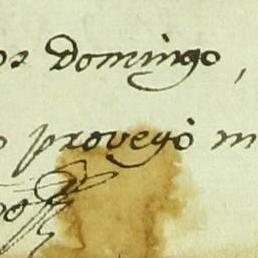 os domingo,
o proveyó m